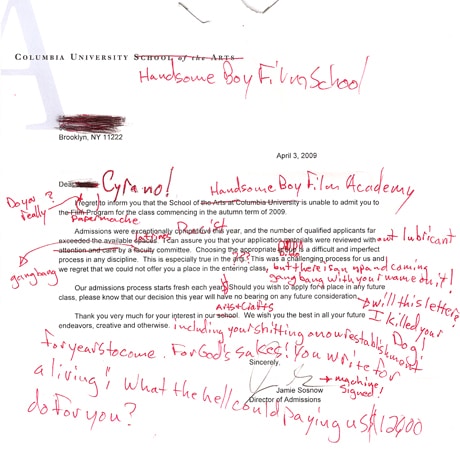 COLUMBIA UNIVERSITY SCHOOL of the ARTS
Handsome Boy Film School
Brooklyn, NY 11222
April 3, 2009
Dear Cyrano!
Handsome Boy Film Academy
Do you really?
I regret to inform you that the School of the Arts at Columbia University is unable to admit you to
the Film Program for the class commencing in the autumn term of 2009.
Papermache
Admissions were exceptionally competitive this year, and the number of qualified applicants far
exceeded the available spaces. I can assure you that your application materials were reviewed with out lubricant
attention and care by a faculty committee. Choosing the appropriate group is a difficult and imperfect
gangbang
process in any discipline. This is especially true in the arts. This was a challenging process for us and
we regret that we could not offer you a place in the entering class, but there is an up and coming
gang bang with your name on it!
Our admissions process starts fresh each year. Should you wish to apply for a place in any future
class, please know that our decision this year will have no bearing on any future consideration.
will this letter?
Arts+Crafts
I killed your Dog!
Thank you very much for your interest in our school. We wish you the best in all your future
endeavors, creative and otherwise. including your shitting on our establishment
for years to come. For God's sakes! You write for
Sincerely,
a living; What the hell could paying us $ 12000
machine signed!
Jamie Sosnow
Director of Admissions
do for you?